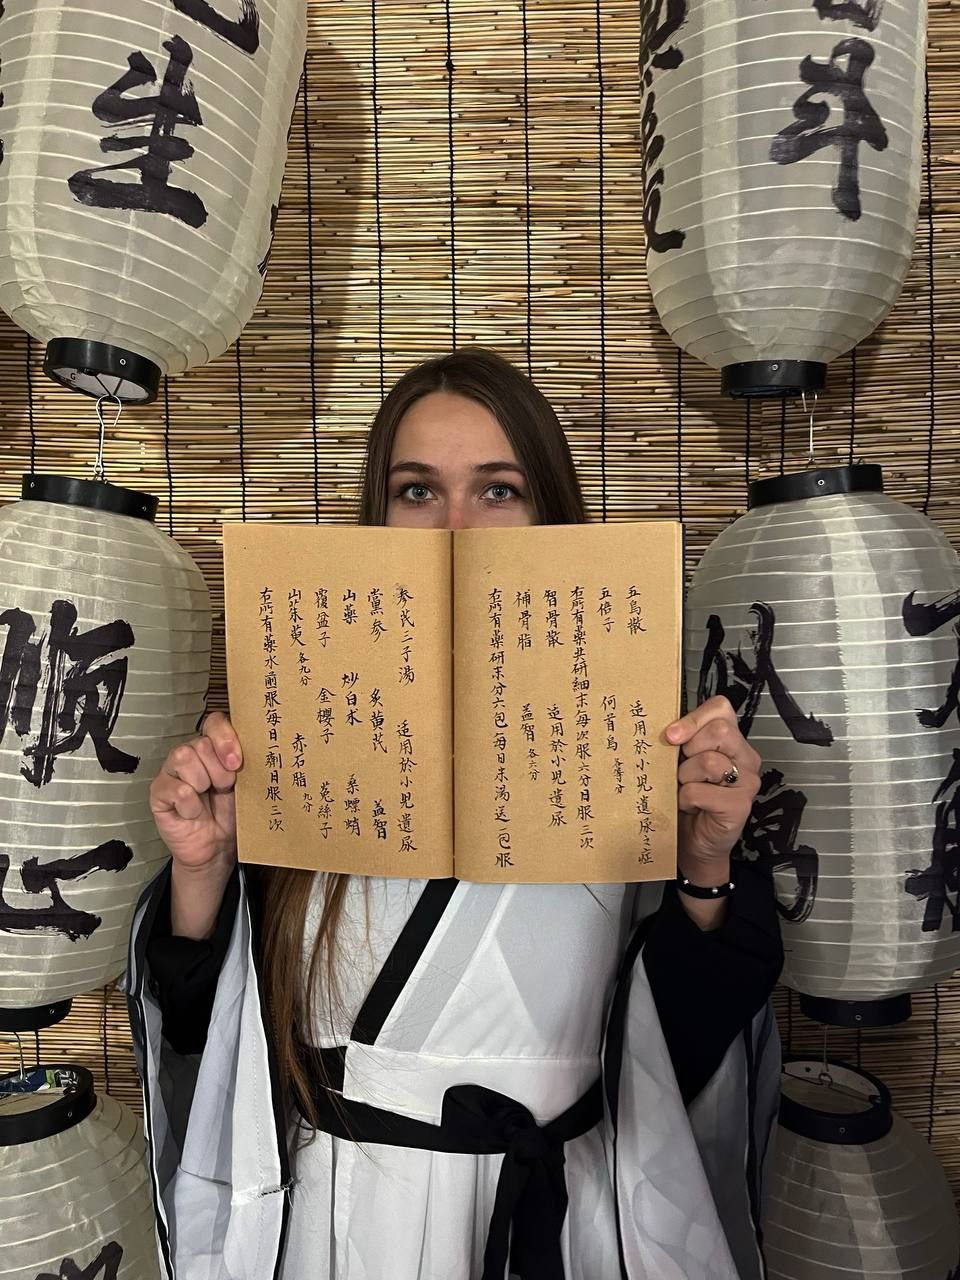 生
斗
順
五烏散 适用於小兒遺尿之症
五倍子 何首烏 各等分
右所有藥共研細末每次服六分日服三次
智骨散 适用於小兒遺尿
補骨脂 益智 各六分
右所有藥研末分六包每日米湯送一包服
参芪三子湯 适用於小兒遺尿
黨参 炙黄芪 益智
山藥 炒白朮 桑螵蛸
覆盆子 金櫻子 菟絲子
山茱萸 各九分 赤石脂 九分
右所有藥水煎服每日一劑日服三次